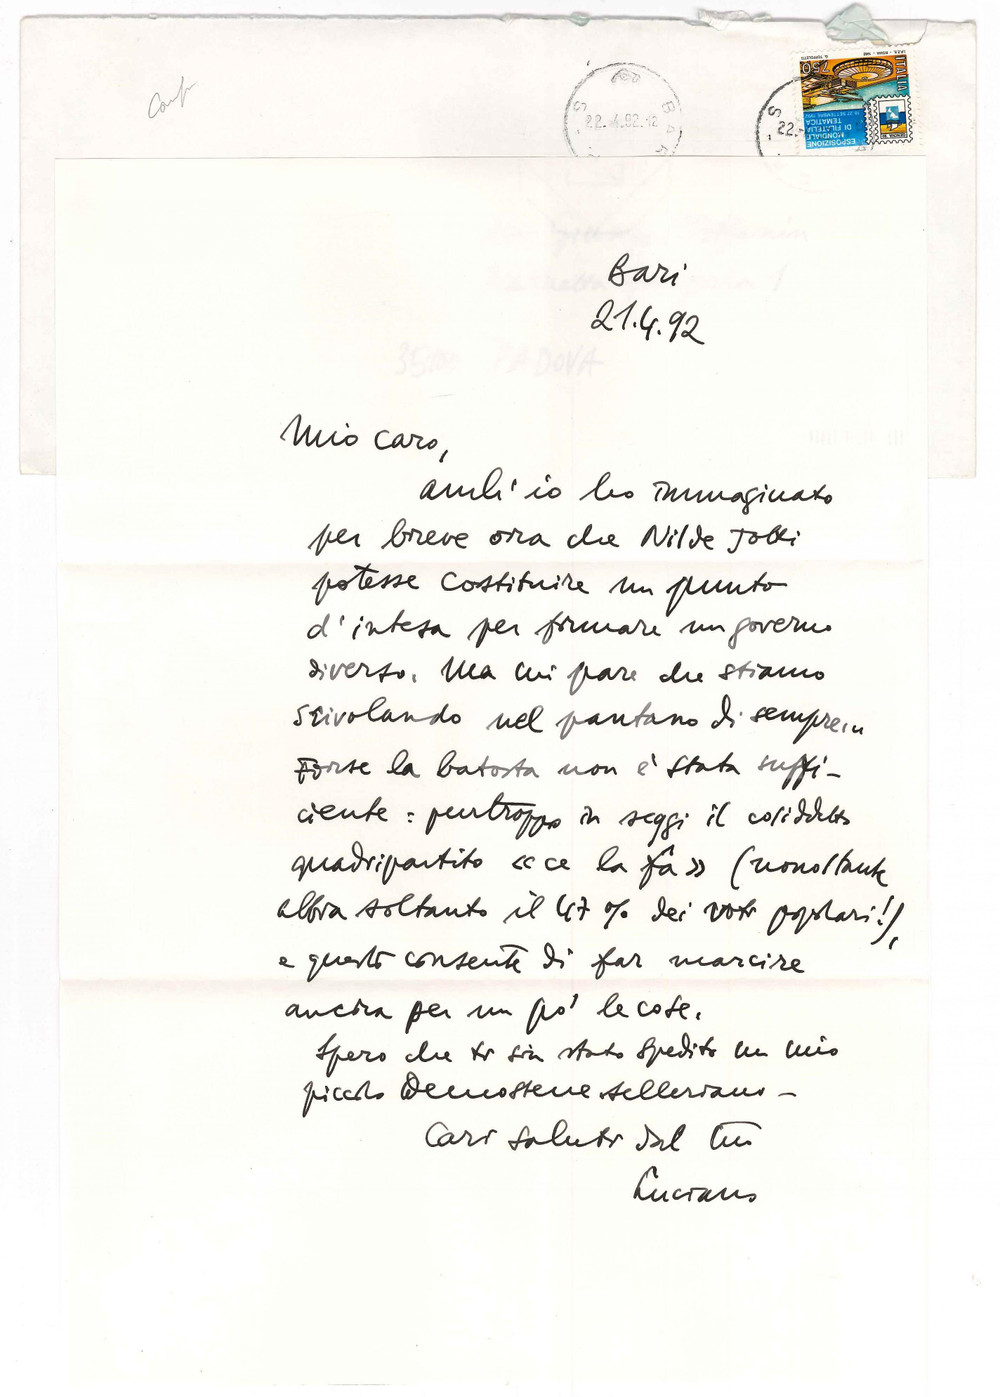 Conf
22.4.92.12
BAR
S
S
22.
ITALIA
750
ESPOSIZIONE
MONDIALE
DI FILATELIA
TEMATICA
35100 PADOVA
Bari
21.4.92
Mio caro,
anch'io ho immaginato
per breve ora che Nilde Jotti
potesse costituire un punto
d'intesa per formare un governo
diverso. Ma mi pare che stiamo
scivolando nel pantano di sempre...
Forse la batosta non è stata suffi-
ciente: purtroppo in seggi il cosiddetto
quadripartito «ce la fa» (nonostante
abbia soltanto il 47% dei voti popolari!),
e questo consente di far marcire
ancora per un po' le cose.
Spero che ti sia stato spedito un mio
piccolo Demostene selleriano –
Cari saluti dal tuo
Luciano